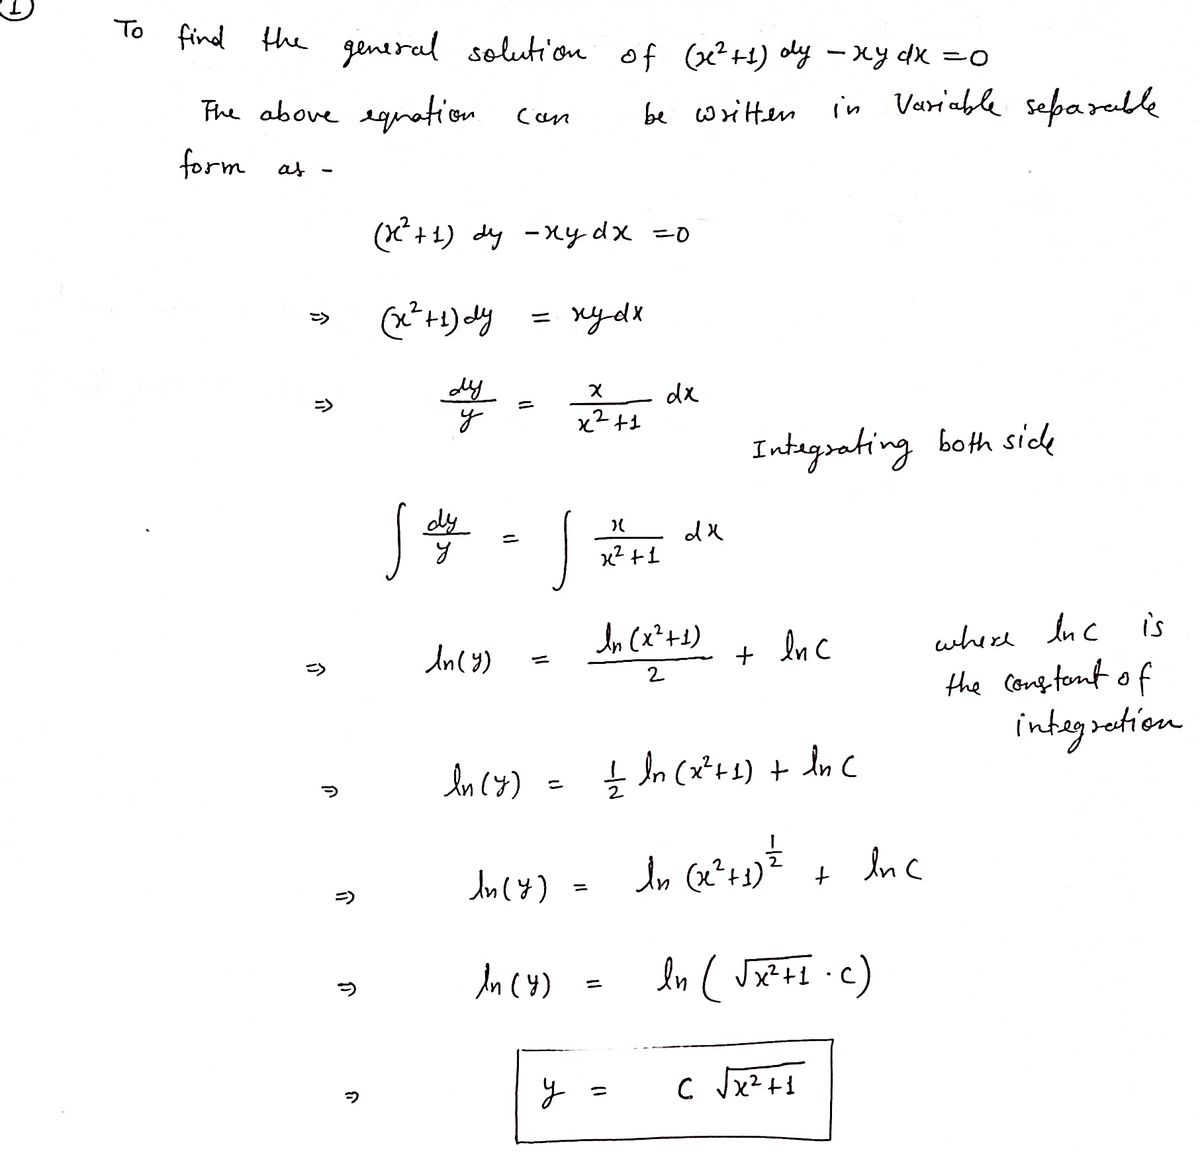 1
To find the general solution of (x²+1) dy – xy dx = 0
The above equation can be written in Variable separable
form as -
(x²+1) dy – xy dx = 0
⇒ (x²+1) dy = xy dx
⇒ dy/y = x/(x²+1) dx
Integrating both side
∫ dy/y = ∫ x/(x²+1) dx
⇒ ln(y) = ln(x²+1)/2 + ln c where ln c is
the constant of
integration
⇒ ln(y) = 1/2 ln(x²+1) + ln c
⇒ ln(y) = ln (x²+1)^(1/2) + ln c
⇒ ln(y) = ln (√(x²+1) · c)
⇒ y = c √(x²+1)